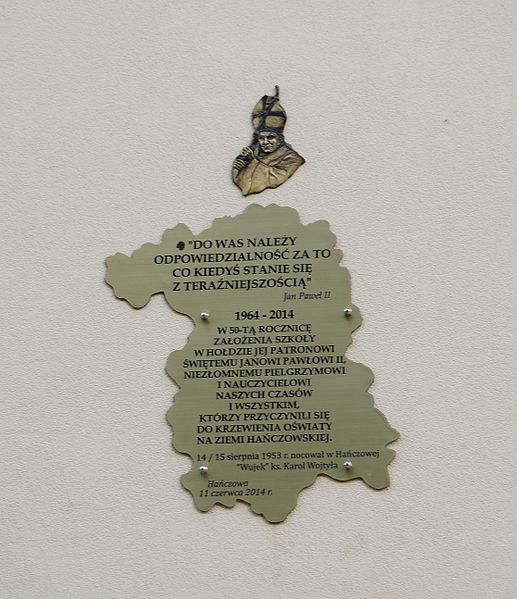 "DO WAS NALEŻY
ODPOWIEDZIALNOŚĆ ZA TO
CO KIEDYŚ STANIE SIĘ
Z TERAŹNIEJSZOŚCIĄ"
Jan Paweł II
1964 - 2014
W 50-TĄ ROCZNICĘ
ZAŁOŻENIA SZKOŁY
W HOŁDZIE JEJ PATRONOWI
ŚWIĘTEMU JANOWI PAWŁOWI II,
NIEZŁOMNEMU PIELGRZYMOWI
I NAUCZYCIELOWI
NASZYCH CZASÓW
I WSZYSTKIM,
KTÓRZY PRZYCZYNILI SIĘ
DO KRZEWIENIA OŚWIATY
NA ZIEMI HAŃCZOWSKIEJ.
14 / 15 sierpnia 1953 r. nocował w Hańczowej
"Wujek" ks. Karol Wojtyła
Hańczowa
11 czerwca 2014 r.